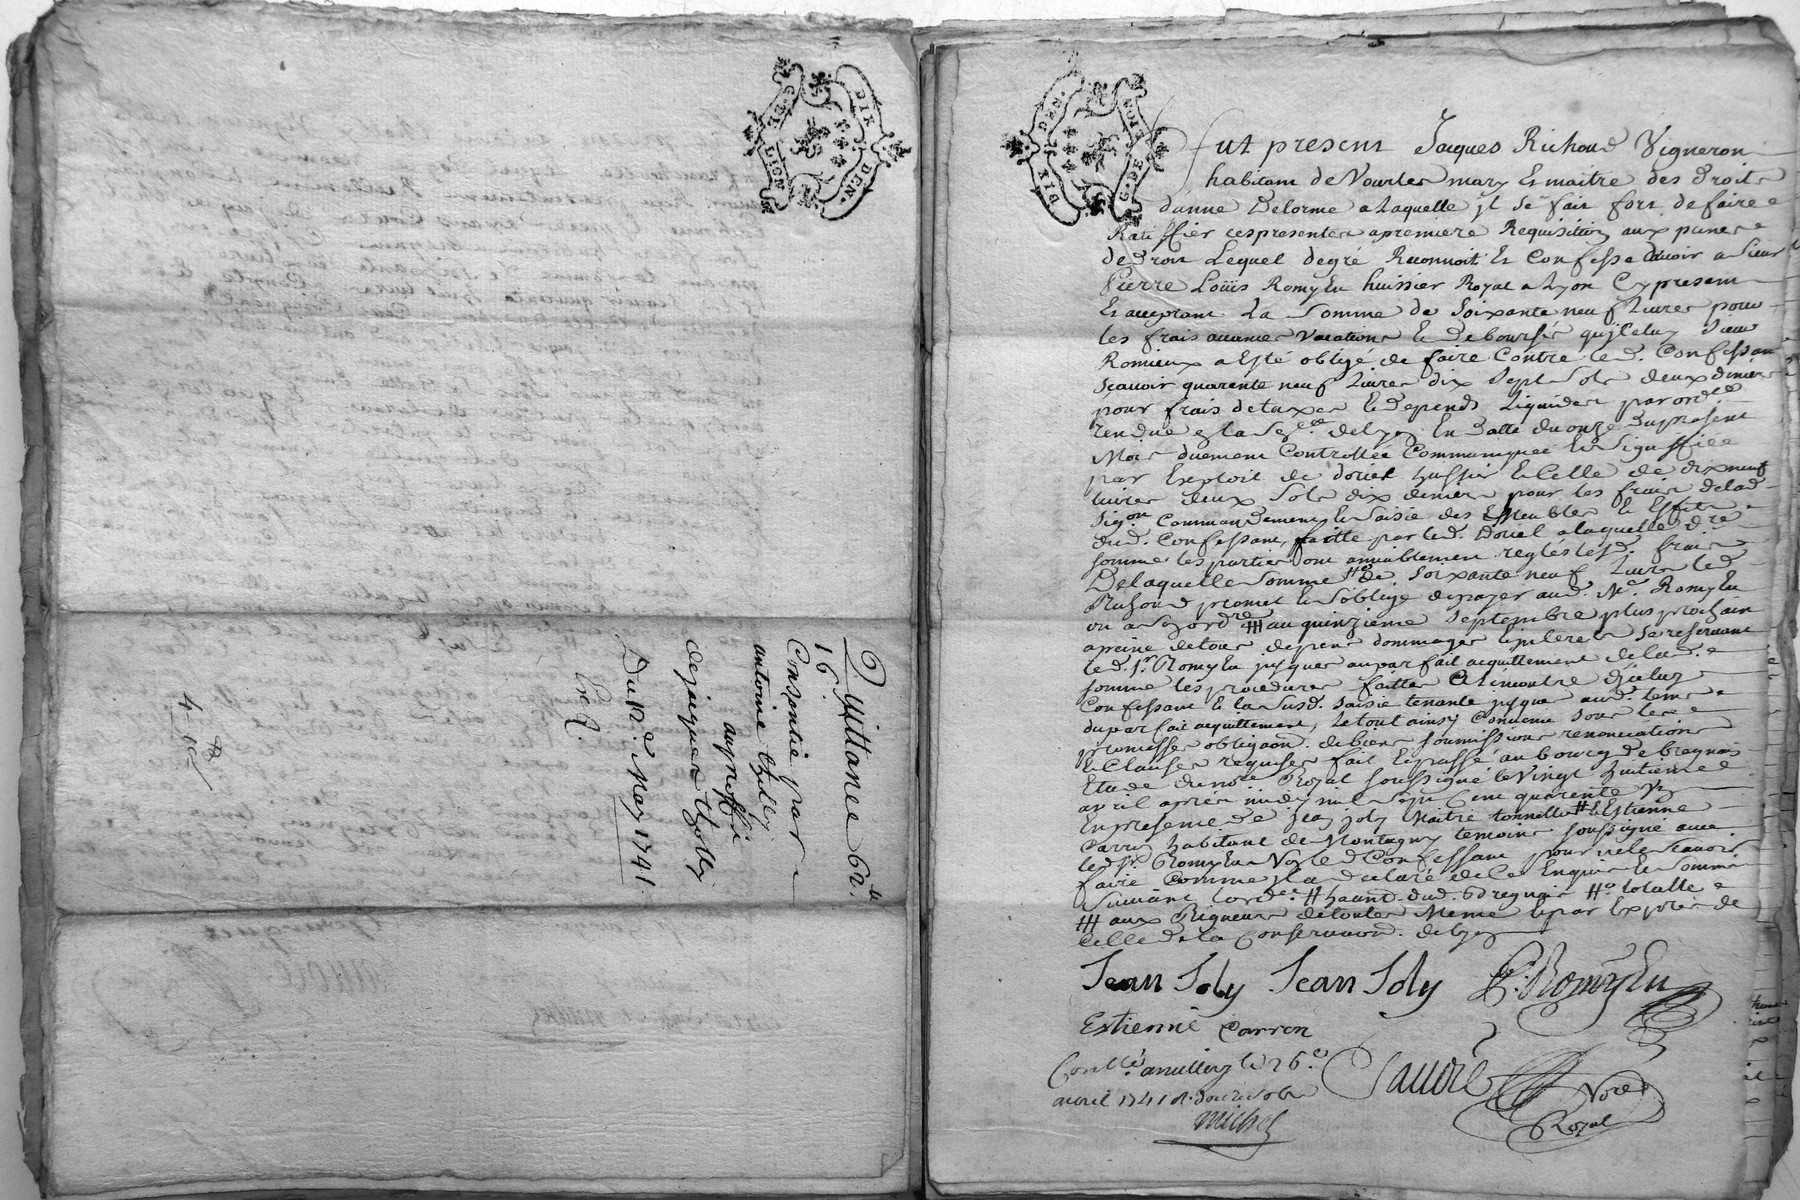 G. DE LION
DIX DEN.
Quittance 62 lt
16 s
Consentie par
antoine
de jacques
Du 12e May 1741
Exp.
DIX DEN.
G. DE LION
fut present Jacques Richoud Vigneron
habitant de Vourles mary Et maitre des droits
danne Delorme a Laquelle jl se fait fort de faire
Ratiffier cespresentes apremiere Requisition aux peines
de Droit Lequel degré Reconnoit Et Confesse devoir a sieur
Pierre Loüis Romyeu huissier Royal a Lyon Cy present
Et acceptant La somme de soixante neuf Livres pour
les frais avances vacations et debourses qu'jceluy sieur
Romieux a Esté obligé de faire Contre led. Confessant
scavoir quarente neuf Livres dix sept sols deux deniers
pour frais detaxes et depends Liquides par ordce
rendue En la Sen.cee delyon En datte du onze du present
Mois duement Controllée Communiquée Et Signiffiée
par Exploit de doriel huissier et Celle de dix neuf
livres deux sols dix deniers pour les frais delad.
sig.on Commandement Et saisie des Meubles Et Effets
dud. Confessant, faitte par led. Doriel a laquelle d.re
somme les parties ont amiablement reglés lesd. frais
Delaquelle somme #o de soixante neuf Livres led.
Richoud promet Et soblige depayer aud. Mr. Romyeu
ou a son ordre ### au quinzieme septembre plus prochain
apeine detous depens dommages Et interets se reservant
led. sr. Romyeu jusques au parfait acquittement delad.
somme les procedures faittes a Lencontre djceluy
Confessant Et la susd. saisie tenante jusque aud. tems
du parfait acquittement, Le tout ainsy Convenu sous les
promesses obligaon. de biens soumissions renonciations
Et Clauses requises fait Et passé au bourg de bregnais
Etude du no.re Royal soussigné le Vingt huitieme
avril aprés midy mil sept Cent quarente Un
En presence de Jean Joly Maitre tonnellier # Et Estienne
Carron habitant de Montagny temoins soussigné avec
led. sr. Romyeu Non led Confessant pour nele scavoir
faire Comme jl a declaré dece Enquis Et sommé
suivant lord.ce # haant. dud. Bregnais #o totalle
### aux Rigueurs de toutes Meme Et par Exprés de
Celle de la Conservaon. delyon
Jean Joly Jean Joly P. Romyeu
Estienne Carron
Contlé. amillery le 26e
avril 1741 R. douze sols
michel
Sauvré Nore
Royal